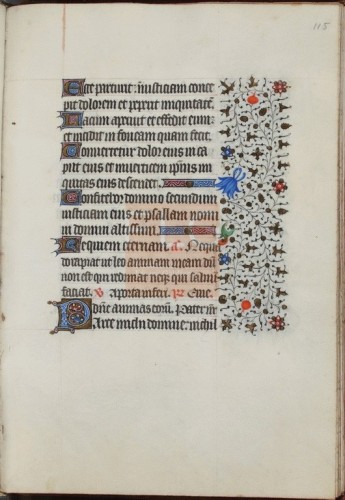 115
Ecce parturit iniusticiam conce
pit dolorem et peperit iniquitatē.
Lacum aperuit et effodit eum
et incidit in foueam quam fecit.
Conuertetur dolor eius in ca
put eius et in uerticem ipsius ini
quitas eius descendet.
Confitebor domino secundum
iusticiam eius et psallam nomi
ni domini altissimi.
Requiem eternam. a. Nequā
do rapiat ut leo animam meam dū
non est qui redimat neque qui saluū
faciat. v Aporta inferi. r Erue.
Dn̄e animas eorū. Pater nr̄
Parce michi domine. michil